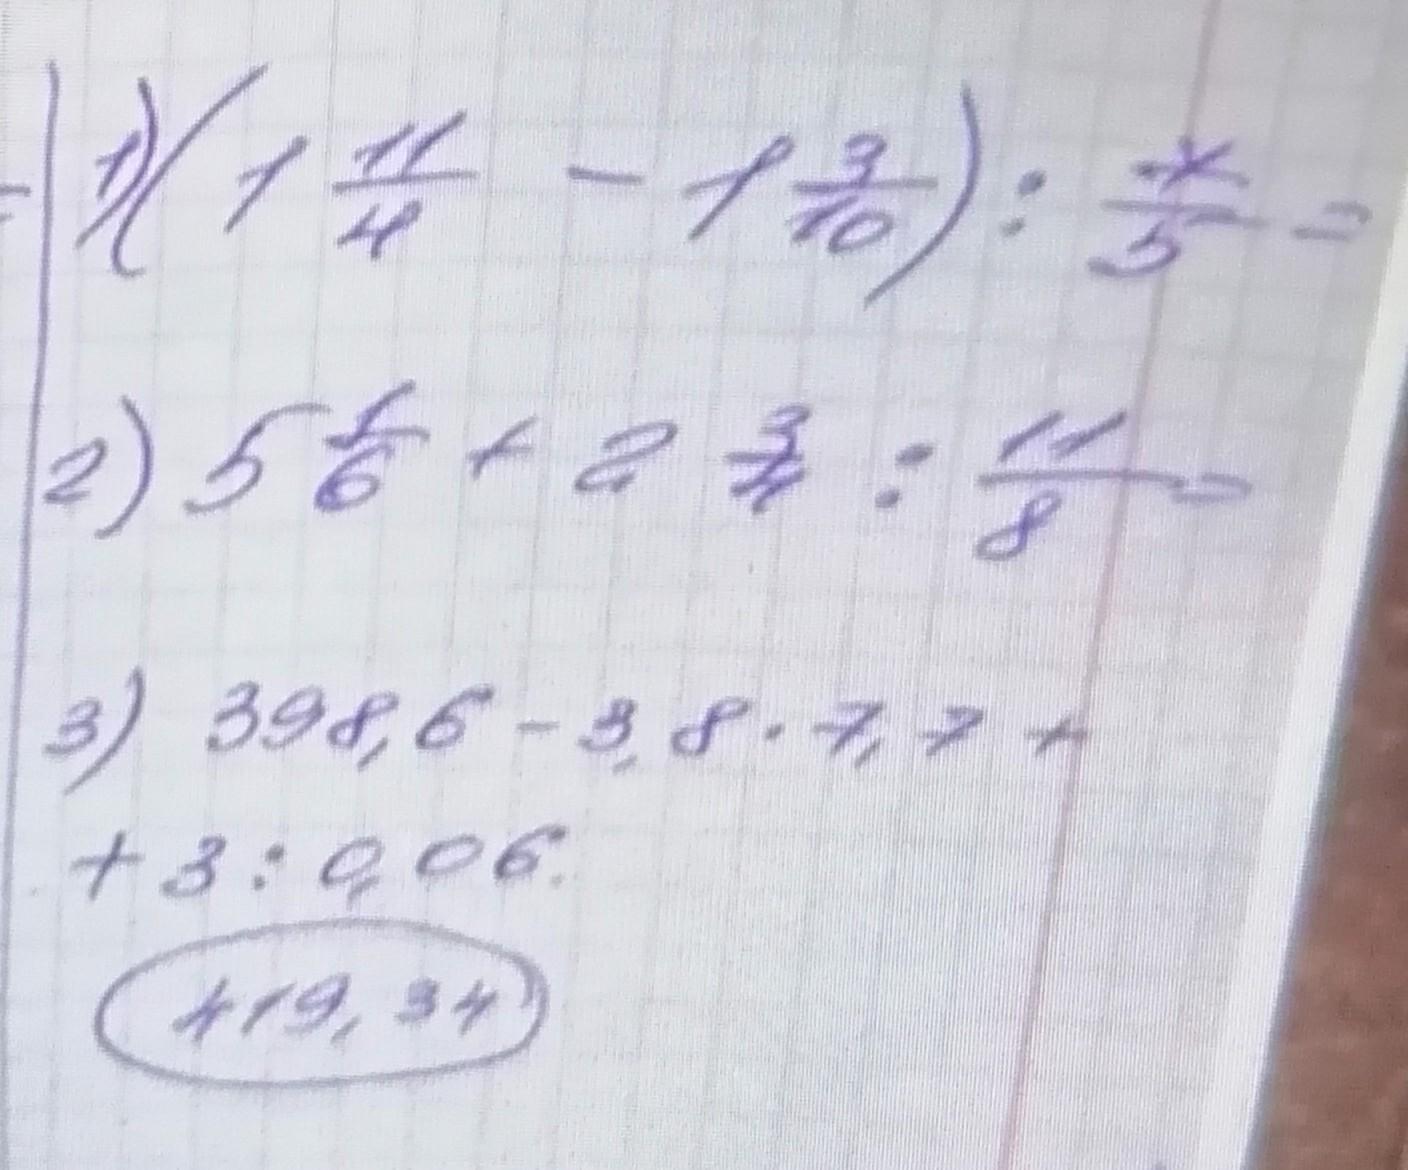 1) (1 11/4 - 1 3/10) : 7/5 =
2) 5 1/6 + 2 3/4 : 11/8 =
3) 398,6 - 3,8 · 7,7 +
+ 3 : 0,06.
419,34